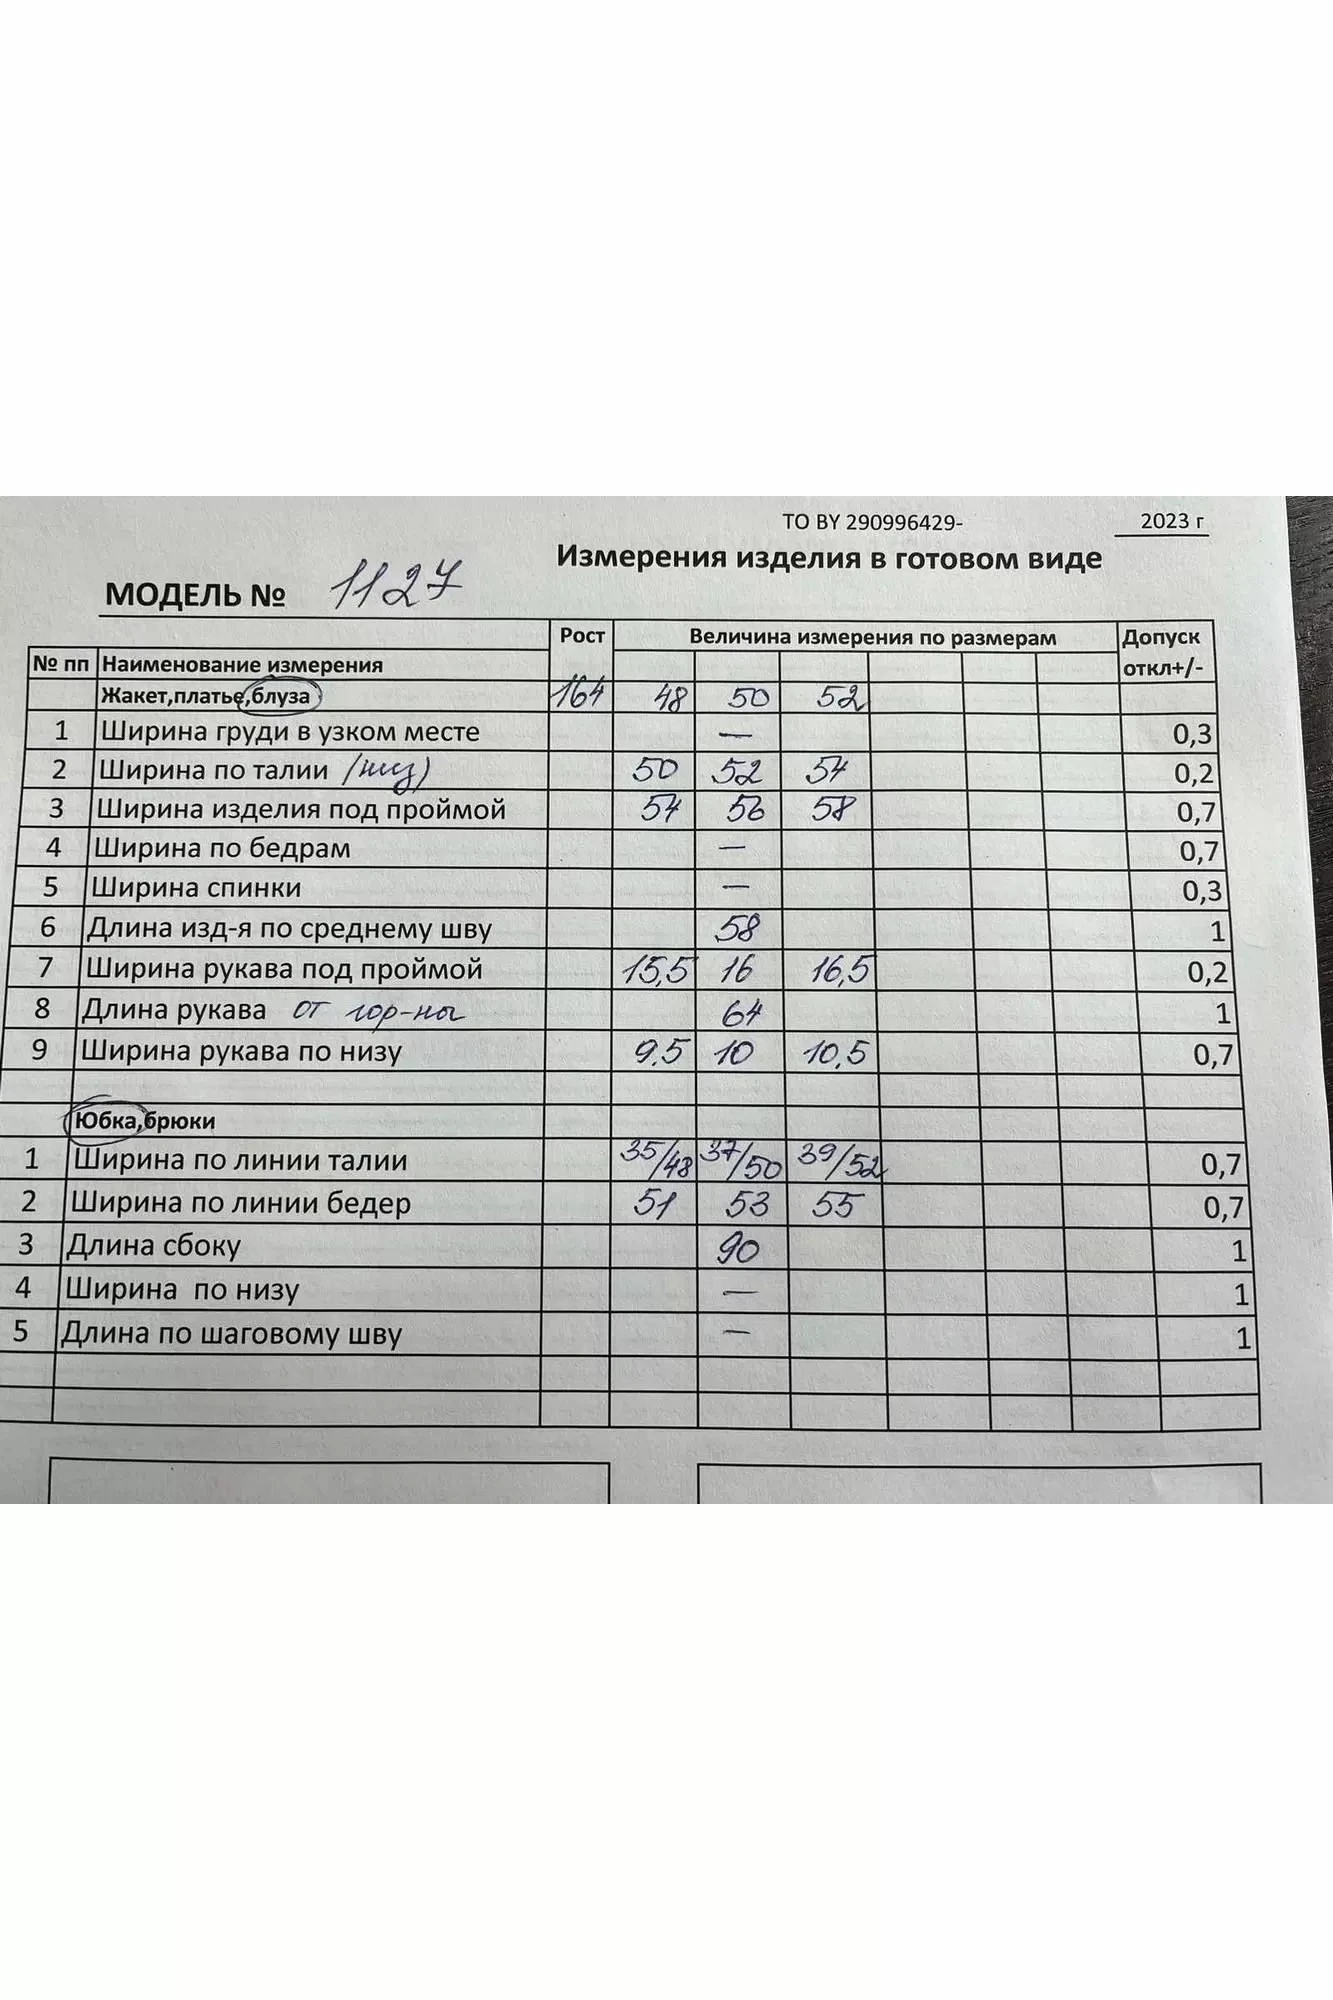 ТО BY 290996429- 2023 г
Измерения изделия в готовом виде
МОДЕЛЬ № 1127
Рост Величина измерения по размерам Допуск
№ пп Наименование измерения откл+/-
Жакет,платье,блуза 164 48 50 52
1 Ширина груди в узком месте — 0,3
2 Ширина по талии /низ) 50 52 54 0,2
3 Ширина изделия под проймой 54 56 58 0,7
4 Ширина по бедрам — 0,7
5 Ширина спинки — 0,3
6 Длина изд-я по среднему шву 58 1
7 Ширина рукава под проймой 15,5 16 16,5 0,2
8 Длина рукава от гор-ны 64 1
9 Ширина рукава по низу 9,5 10 10,5 0,7
Юбка,брюки
1 Ширина по линии талии 35/48 37/50 39/52 0,7
2 Ширина по линии бедер 51 53 55 0,7
3 Длина сбоку 90 1
4 Ширина по низу — 1
5 Длина по шаговому шву — 1